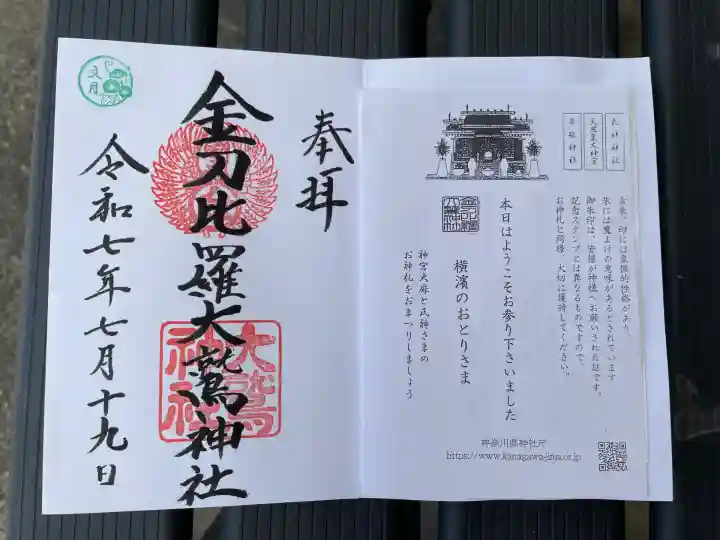 奉拝
金刀比羅大鷲神社
大鷲
神社
令和七年七月十九日
文月
氏神神社
天照皇大神宮
崇敬神社
古来、印には象徴的性格があり、
朱には魔よけの意味があるとされています
御朱印は、皆様が神様へお願いされた証です。
記念スタンプとは異なるものですので、
お神札と同様、大切に護持してください。
本日はようこそお参り下さいました
横濱のおとりさま
神宮大麻と氏神さまの
お神札をおまつりしましょう
神奈川県神社庁
https://www.kanagawa-jinja.or.jp